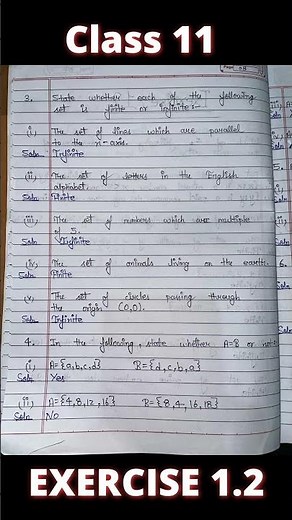 Class 11
3. State whether each of the following
set is finite or infinite:-
(i) The set of lines which are parallel
to the x-axis.
Soln Infinite
(ii) The set of letters in the English
alphabet.
Soln Finite
(iii) The set of numbers which are multiple
of 5.
Soln Infinite
(iv) The set of animals living on the earth.
Soln Finite
(v) The set of circles passing through
the origin (0,0).
Soln Infinite
4. In the following, state whether A=B or not:-
(i) A={a,b,c,d} B={d,c,b,a}
Soln Yes
(ii) A={4,8,12,16} B={8,4,16,18}
Soln No
EXERCISE 1.2